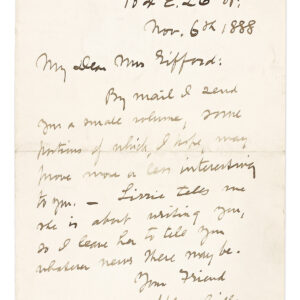 104 E. 26 St.
Nov. 6th 1888
My Dear Mrs Gifford:
By mail I send
you a small volume, some
portions of which, I hope, may
prove more or less interesting
to you. — Lizzie tells me
she is about writing you,
so I leave her to tell you
whatever news there may be.
Your Friend